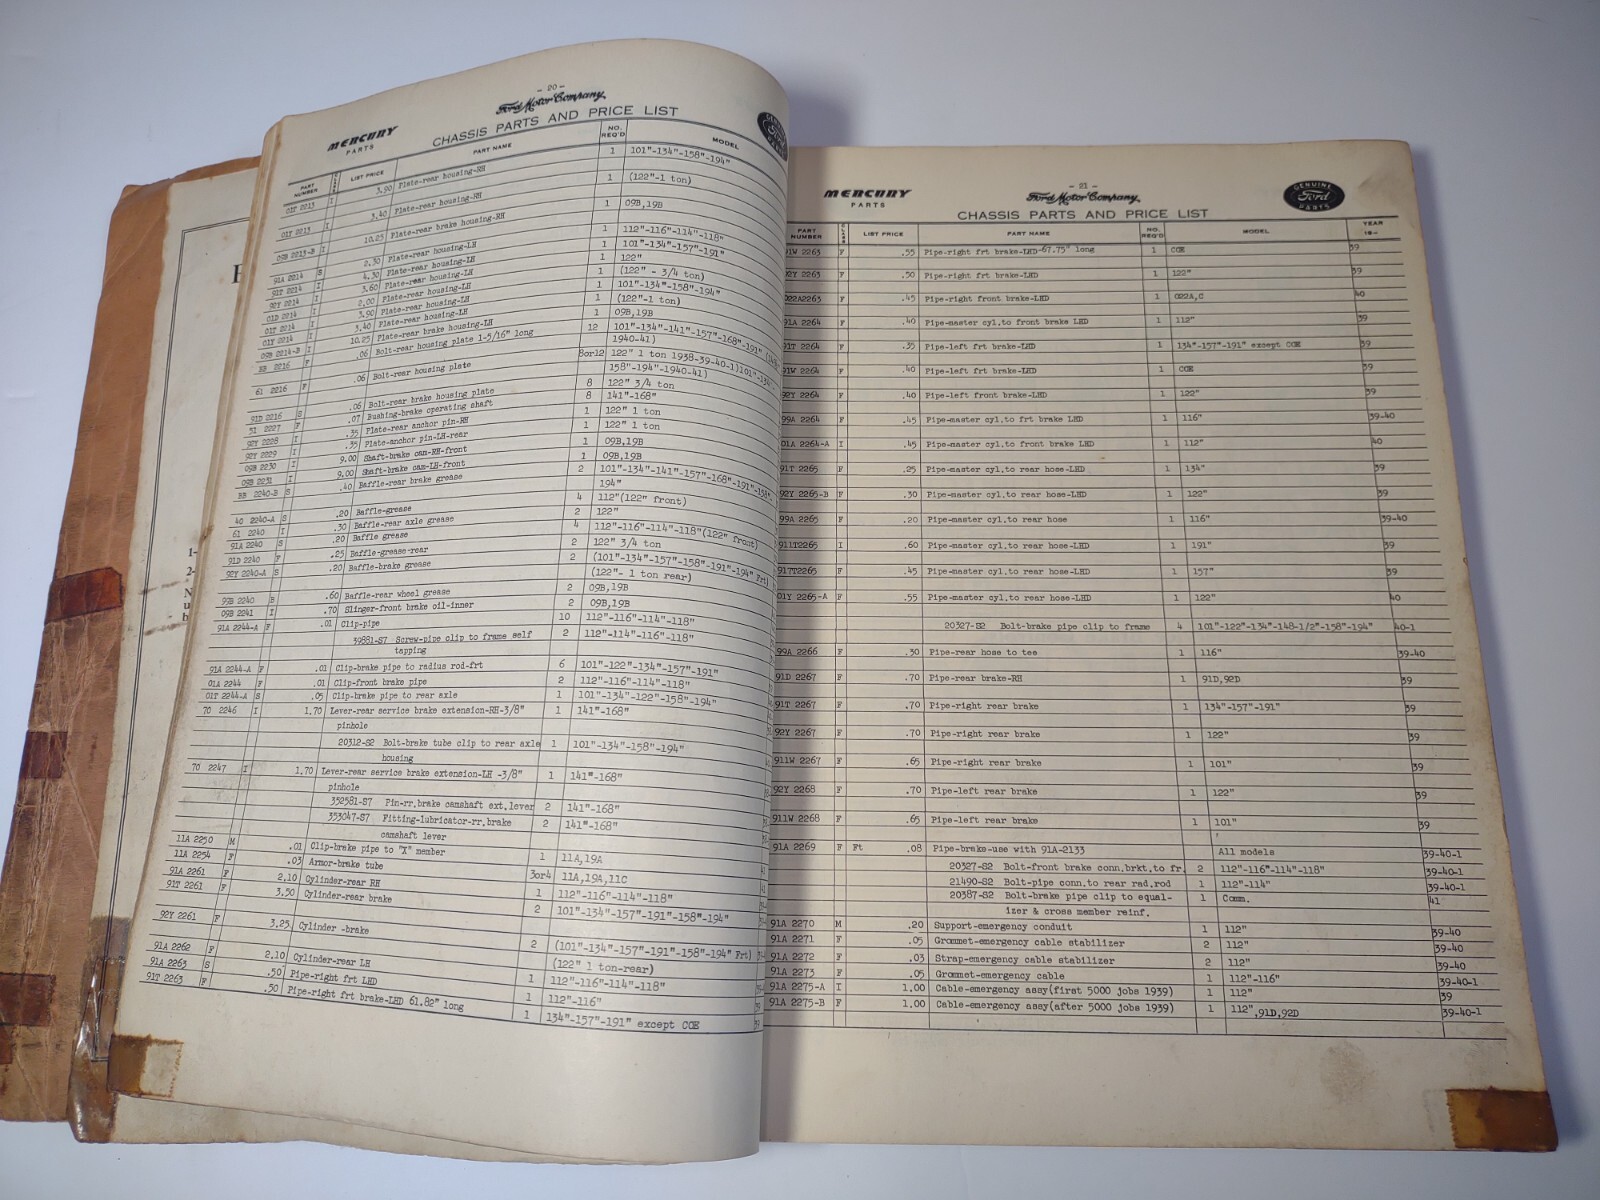 - 20 -
Ford Motor Company
MERCURY
PARTS
CHASSIS PARTS AND PRICE LIST
PART NUMBER LIST PRICE PART NAME NO. REQ'D MODEL
01T 2213 I 3.90 Plate-rear housing-RH 1 101"-134"-158"-194"
01Y 2213 I 3.40 Plate-rear housing-RH 1 (122"-1 ton)
09B 2213-B I 10.25 Plate-rear brake housing-RH 1 09B,19B
91A 2214 S 2.30 Plate-rear housing-LH 1 112"-116"-114"-118"
91T 2214 I 4.30 Plate-rear housing-LH 1 101"-134"-157"-191"
92Y 2214 I 3.60 Plate-rear housing-LH 1 122"
01D 2214 I 2.00 Plate-rear housing-LH 1 (122" - 3/4 ton)
01T 2214 I 3.90 Plate-rear housing-LH 1 101"-134"-158"-194"
01Y 2214 I 3.40 Plate-rear housing-LH 1 (122"-1 ton)
09B 2214-B I 10.25 Plate-rear brake housing-LH 1 09B,19B
BB 2216 F .06 Bolt-rear housing plate 1-5/16" long 12 101"-134"-141"-157"-168"-191"
1940-41)
61 2216 F .06 Bolt-rear housing plate 8or12 122" 1 ton 1938-39-40-1)101"-134"-
158"-194"-1940-41)
91D 2216 S .06 Bolt-rear brake housing plate 8 122" 3/4 ton
51 2227 F .07 Bushing-brake operating shaft 8 141"-168"
92Y 2228 I .35 Plate-rear anchor pin-RH 1 122" 1 ton
92Y 2229 I .35 Plate-anchor pin-LH-rear 1 122" 1 ton
09B 2230 I 9.00 Shaft-brake cam-RH-front 1 09B,19B
09B 2231 I 9.00 Shaft-brake cam-LH-front 1 09B,19B
BB 2240-B S .40 Baffle-rear brake grease 2 101"-134"-141"-157"-168"-191"-158"-
194"
40 2240-A S .20 Baffle-grease 4 112"(122" front)
61 2240 I .30 Baffle-rear axle grease 2 122"
91A 2240 S .20 Baffle grease 4 112"-116"-114"-118"(122" front)
91D 2240 F .25 Baffle-grease-rear 2 122" 3/4 ton
92Y 2240-A S .20 Baffle-brake grease 2 (101"-134"-157"-158"-191"-194" Frt)
(122"- 1 ton rear)
99B 2240 S .60 Baffle-rear wheel grease 2 09B,19B
09B 2241 I .70 Slinger-front brake oil-inner 2 09B,19B
91A 2244-A F .01 Clip-pipe 10 112"-116"-114"-118"
39881-S7 Screw-pipe clip to frame self 2 112"-114"-116"-118"
tapping
91A 2244-A F .01 Clip-brake pipe to radius rod-frt 6 101"-122"-134"-157"-191"
01A 2244 F .01 Clip-front brake pipe 2 112"-116"-114"-118"
01T 2244-A S .05 Clip-brake pipe to rear axle 1 101"-134"-122"-158"-194"
70 2246 I 1.70 Lever-rear service brake extension-RH-3/8" 1 141"-168"
pinhole
20312-S2 Bolt-brake tube clip to rear axle 1 101"-134"-158"-194"
housing
70 2247 I 1.70 Lever-rear service brake extension-LH -3/8" 1 141"-168"
pinhole
352581-S7 Pin-rr.brake camshaft ext.lever 2 141"-168"
353047-S7 Fitting-lubricator-rr.brake 2 141"-168"
camshaft lever
11A 2250 M .01 Clip-brake pipe to "X" member 1 11A,19A
11A 2254 F .03 Armor-brake tube 3or4 11A,19A,11C
91A 2261 F 2.10 Cylinder-rear RH 1 112"-116"-114"-118"
91T 2261 F 3.50 Cylinder-rear brake 2 101"-134"-157"-191"-158"-194"
92Y 2261 F 3.25 Cylinder -brake 2 (101"-134"-157"-191"-158"-194" Frt)
(122" 1 ton-rear)
91A 2262 F 2.10 Cylinder-rear LH 1 112"-116"-114"-118"
91A 2263 S .50 Pipe-right frt LHD 1 112"-116"
91T 2263 F .50 Pipe-right frt brake-LHD 61.82" long 1 134"-157"-191" except COE
- 21 -
MERCURY
PARTS
Ford Motor Company
CHASSIS PARTS AND PRICE LIST
GENUINE
Ford
PARTS
PART NUMBER CLASS LIST PRICE PART NAME NO. REQ'D MODEL YEAR 19-
91W 2263 F .55 Pipe-right frt brake-LHD-67.75" long 1 COE 39
92Y 2263 F .50 Pipe-right frt brake-LHD 1 122" 39
022A2263 F .45 Pipe-right front brake-LHD 1 022A,C 40
91A 2264 F .40 Pipe-master cyl.to front brake LHD 1 112" 39
91T 2264 F .35 Pipe-left frt brake-LHD 1 134"-157"-191" except COE 39
91W 2264 F .40 Pipe-left frt brake-LHD 1 COE 39
92Y 2264 F .40 Pipe-left front brake-LHD 1 122" 39
99A 2264 F .45 Pipe-master cyl.to frt brake LHD 1 116" 39-40
01A 2264-A I .45 Pipe-master cyl.to front brake LHD 1 112" 40
91T 2265 F .25 Pipe-master cyl.to rear hose-LHD 1 134" 39
92Y 2265-B F .30 Pipe-master cyl.to rear hose-LHD 1 122" 39
99A 2265 F .20 Pipe-master cyl.to rear hose 1 116" 39-40
911T2265 I .60 Pipe-master cyl.to rear hose-LHD 1 191" 39
917T2265 F .45 Pipe-master cyl.to rear hose-LHD 1 157" 39
01Y 2265-A F .55 Pipe-master cyl.to rear hose-LHD 1 122" 40
20327-S2 Bolt-brake pipe clip to frame 4 101"-122"-134"-148-1/2"-158"-194" 40-1
99A 2266 F .30 Pipe-rear hose to tee 1 116" 39-40
91D 2267 F .70 Pipe-rear brake-RH 1 91D,92D 39
91T 2267 F .70 Pipe-right rear brake 1 134"-157"-191" 39
92Y 2267 F .70 Pipe-right rear brake 1 122" 39
911W 2267 F .65 Pipe-right rear brake 1 101" 39
92Y 2268 F .70 Pipe-left rear brake 1 122" 39
911W 2268 F .65 Pipe-left rear brake 1 101" 39
91A 2269 F Ft .08 Pipe-brake-use with 91A-2133 All models 39-40-1
20327-S2 Bolt-front brake conn.brkt.to fr. 2 112"-116"-114"-118" 39-40-1
21490-S2 Bolt-pipe conn.to rear rad.rod 1 112"-114" 39-40-1
20387-S2 Bolt-brake pipe clip to equal- 1 Comm. 41
izer & cross member reinf.
91A 2270 M .20 Support-emergency conduit 1 112" 39-40
91A 2271 F .05 Grommet-emergency cable stabilizer 2 112" 39-40
91A 2272 F .03 Strap-emergency cable stabilizer 2 112" 39-40
91A 2273 F .05 Grommet-emergency cable 1 112"-116" 39-40-1
91A 2275-A I 1.00 Cable-emergency assy(first 5000 jobs 1939) 1 112" 39
91A 2275-B F 1.00 Cable-emergency assy(after 5000 jobs 1939) 1 112",91D,92D 39-40-1